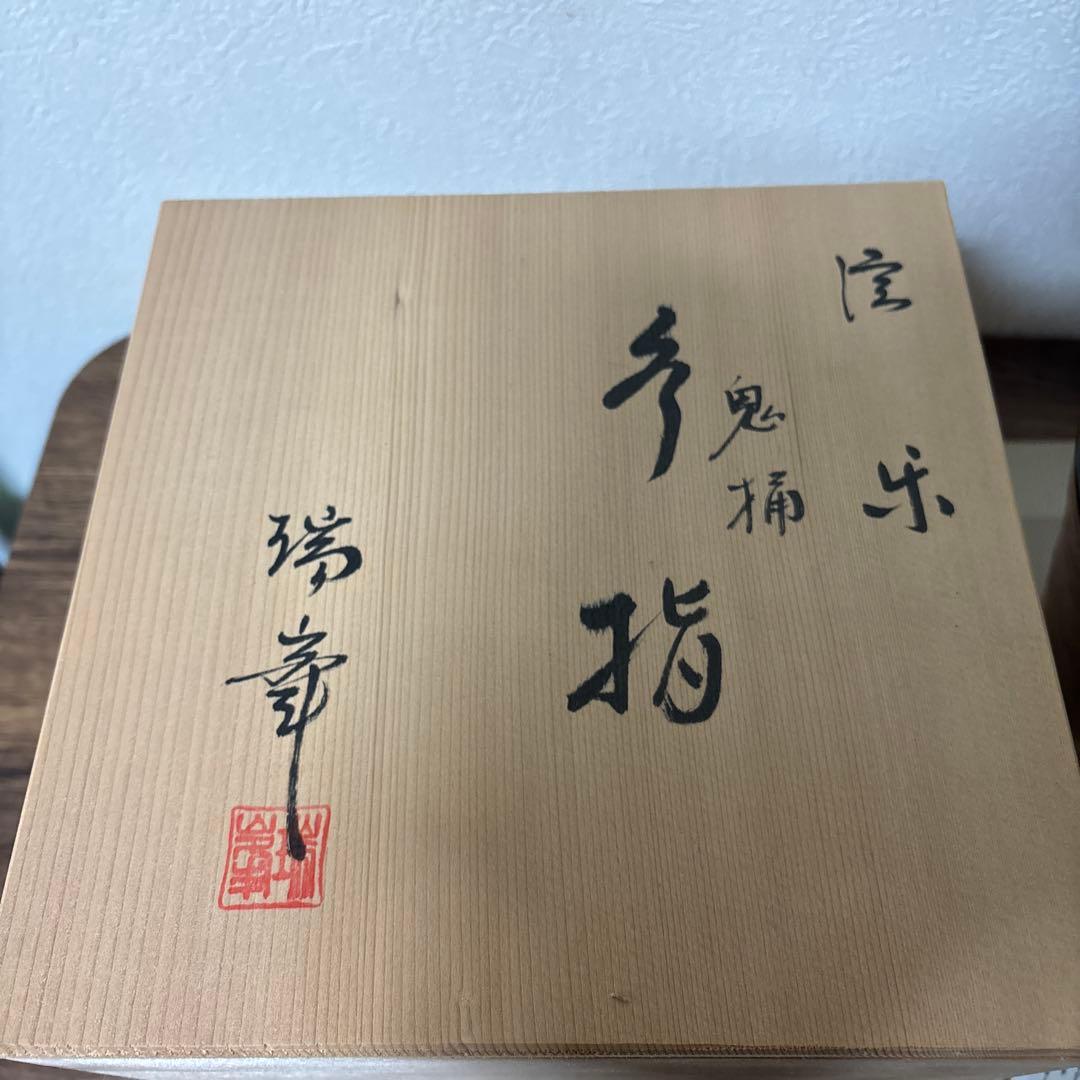 信楽
鬼桶
水指
瑞峯
瑞峯